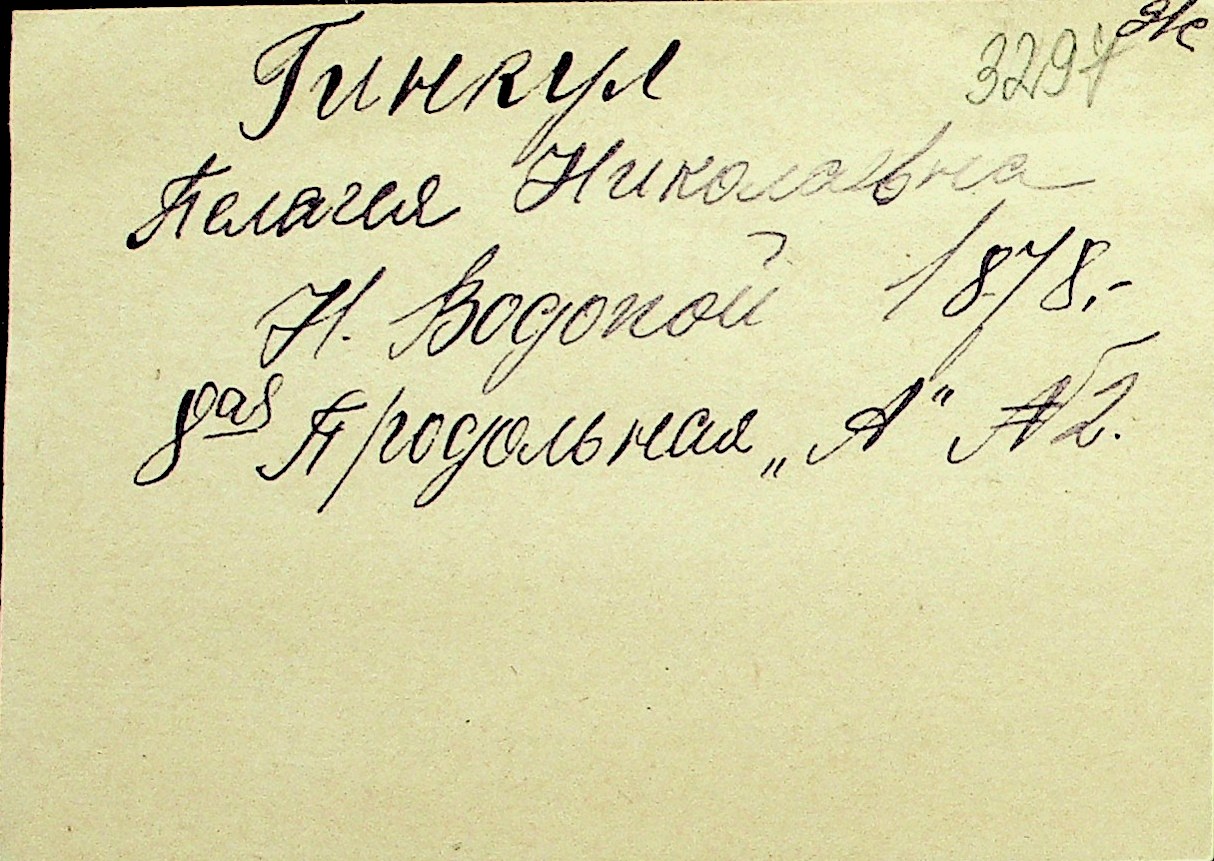 Гинкул
3297
Пелагея Николаевна
Н. Водопой 1878.-
8ая Продольная „А" №2.